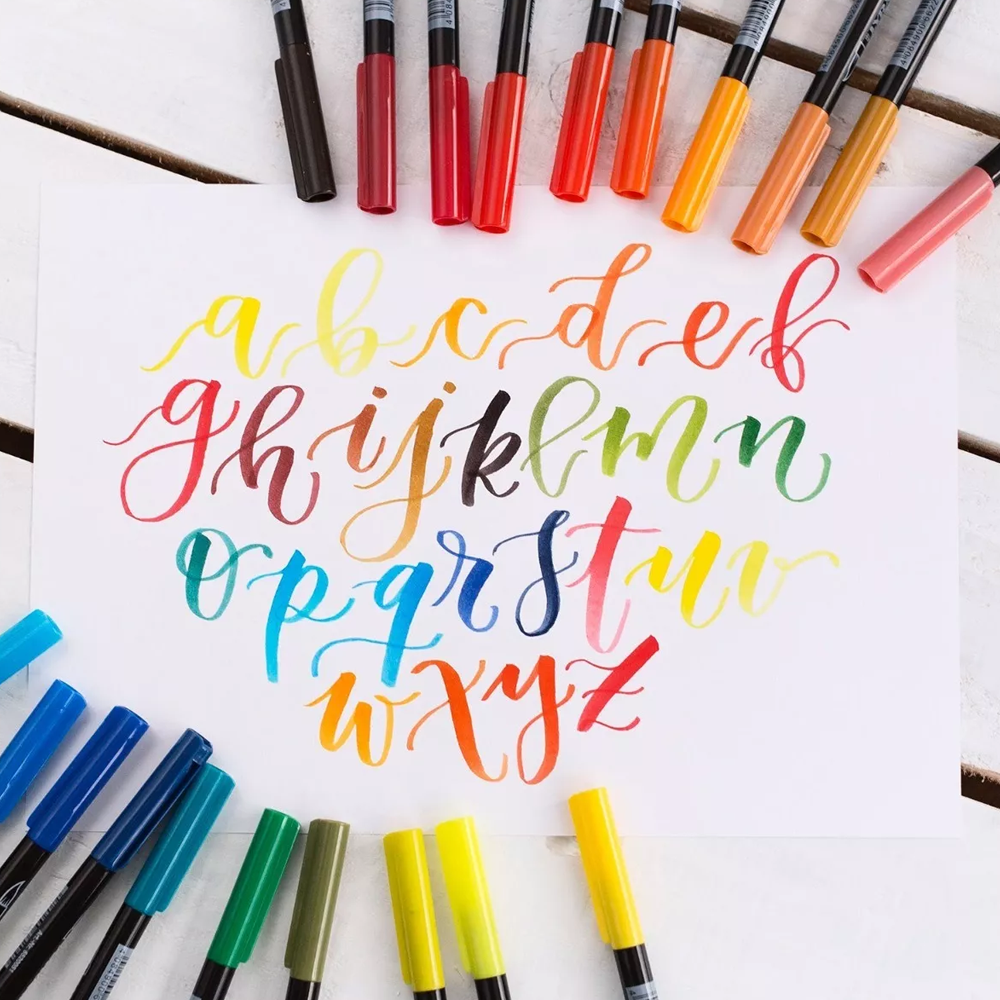 abcdef
ghijklmn
opqrstuv
wxyz